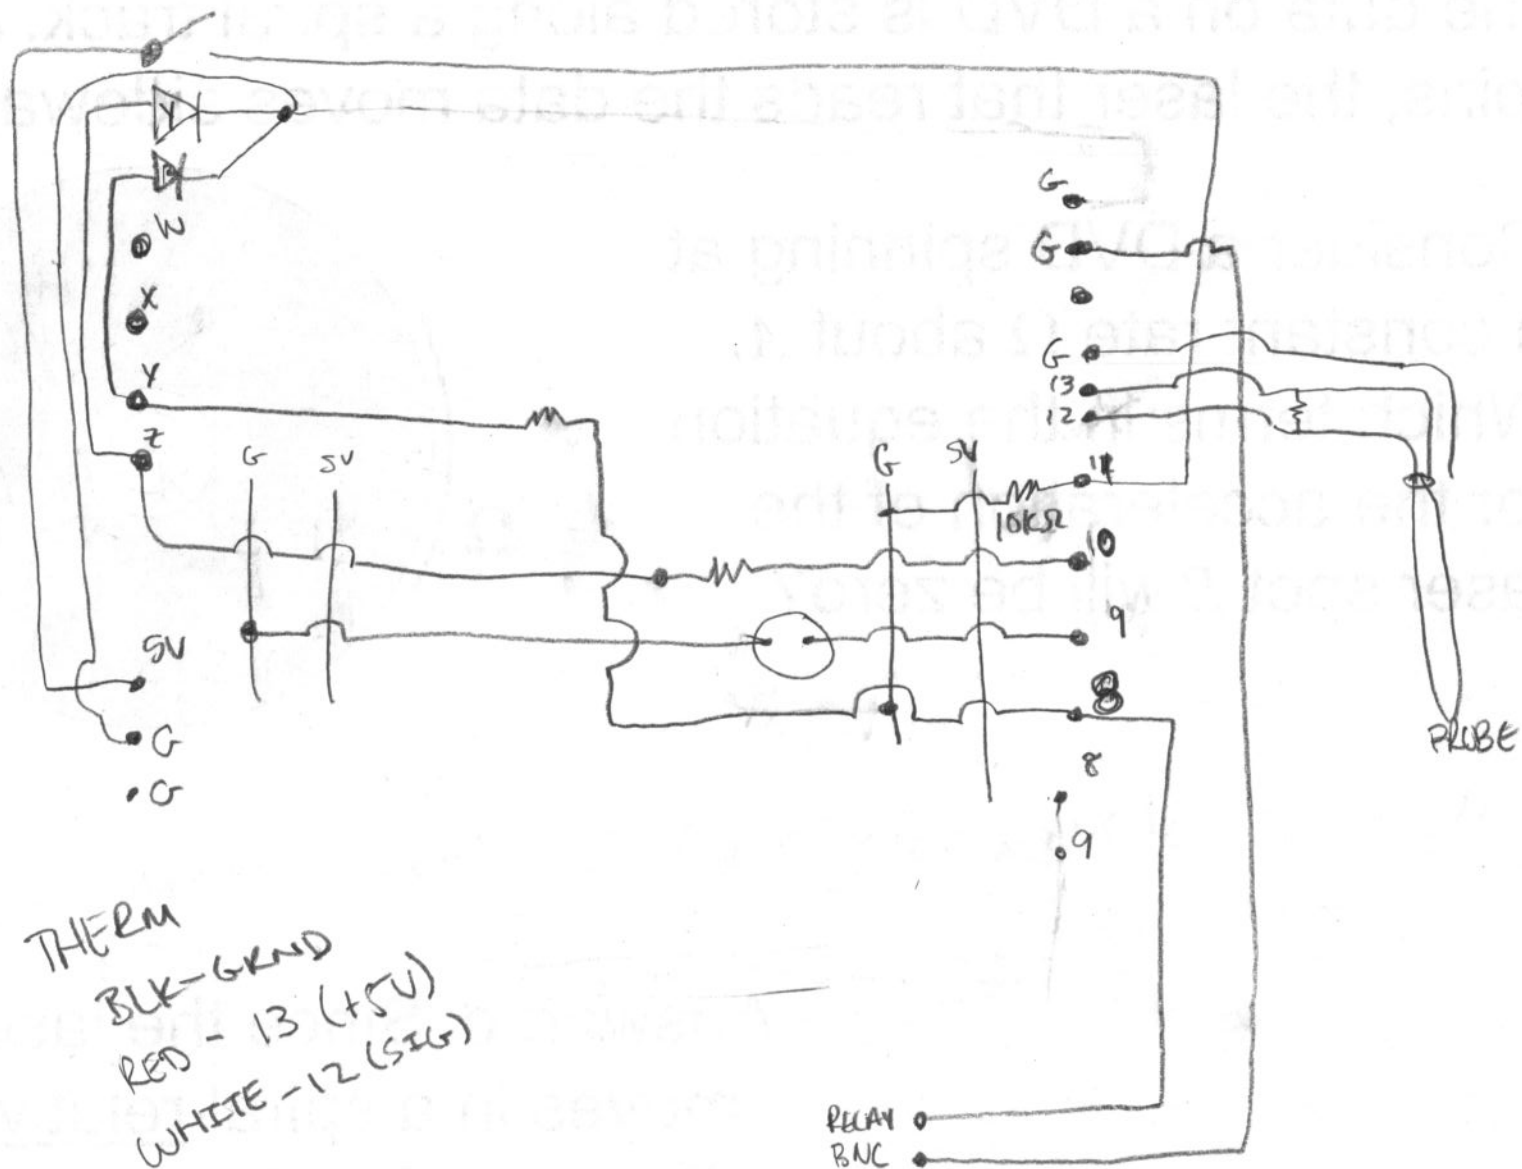 Y
R
W
X
Y
Z
G 5V
5V
G
G
G
G
G
13
12
G 5V
11
10KΩ
10
9
8
8
9
PROBE
THERM
BLK-GRND
RED - 13 (+5V)
WHITE - 12 (SIG)
RELAY
BNC